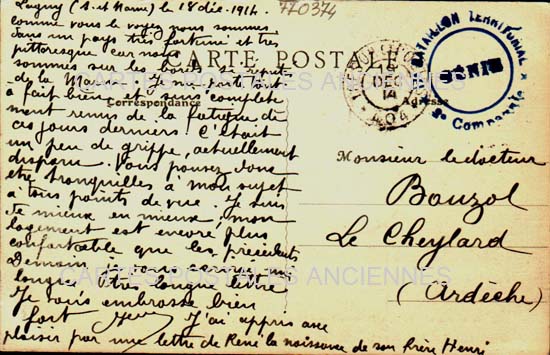 Lagny (S. et Marne) le 18 déc. 1914. 770374
comme vous le voyez nous sommes
dans un pays très fortuné et très
pittoresque car nous
sommes sur les bords
de la Marne. Je me porte tout
à fait bien et suis complète
ment remis de la fatigue de
ces jours derniers. C'était
un peu de grippe, actuellement
disparue. Vous pouvez donc
être tranquilles à mon sujet
à tous points de vue. Je suis
de mieux en mieux; mon
logement est encore plus
confortable que les précédents
Demain je vous
longue très longue lettre
Je vous embrasse bien
fort J'ai appris avec
plaisir par une lettre de René la naissance de son frère Henri
CARTE POSTALE
Correspondance
Adresse
DEC
14
BATAILLON TERRITORIAL
8e Compagnie
Monsieur le docteur
Bouzol
Le Cheylard
(Ardèche)
CARTES POSTALES ANCIENNES
CARTES POSTALES ANCIENNES